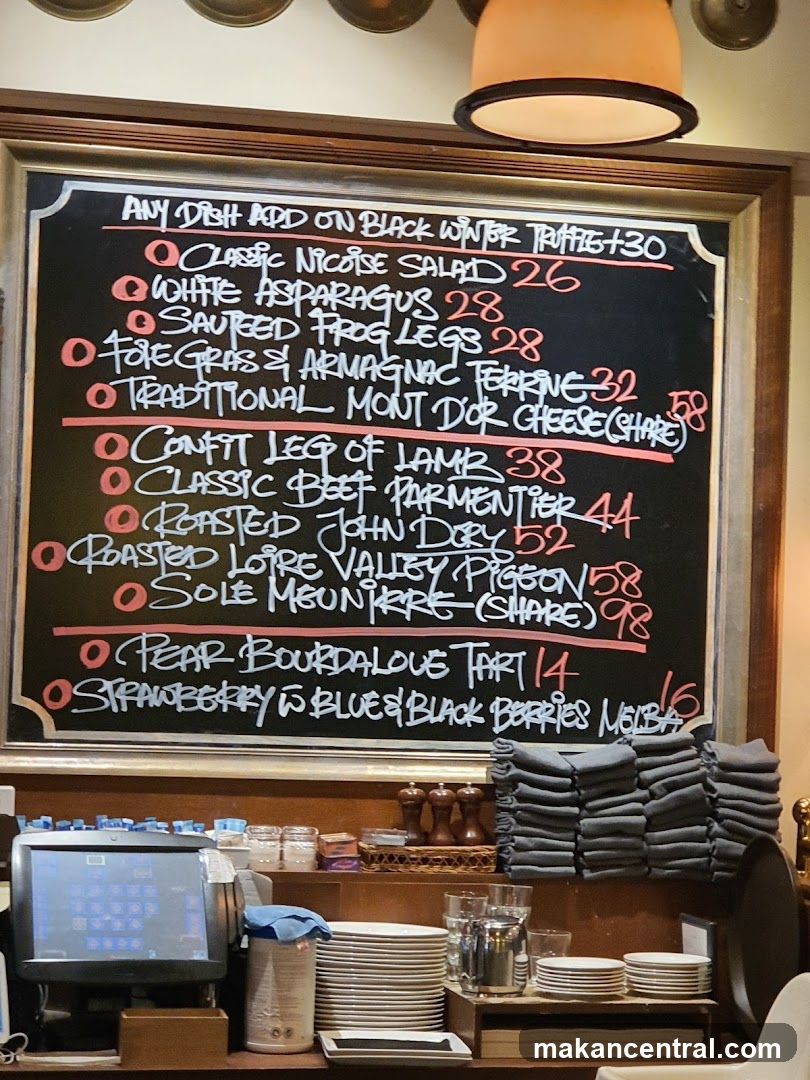 ANY DISH ADD ON BLACK WINTER TRUFFLE +30
CLASSIC NICOISE SALAD 26
WHITE ASPARAGUS 28
SAUTEED FROG LEGS 28
FOIE GRAS & ARMAGNAC TERRINE 32
TRADITIONAL MONT D'OR CHEESE (SHARE) 58
CONFIT LEG OF LAMB 38
CLASSIC BEEF PARMENTIER 44
ROASTED JOHN DORY 52
ROASTED LOIRE VALLEY PIGEON 58
SOLE MEUNIERE (SHARE) 98
PEAR BOURDALOUE TART 14
STRAWBERRY W BLUE & BLACK BERRIES MELBA 16
makancentral.com